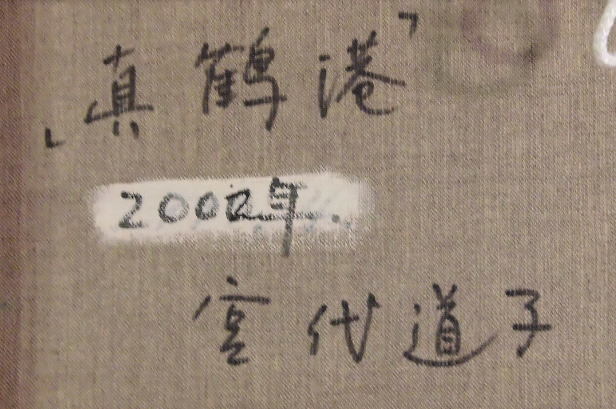 「真鶴港」
2002年.
宮代道子